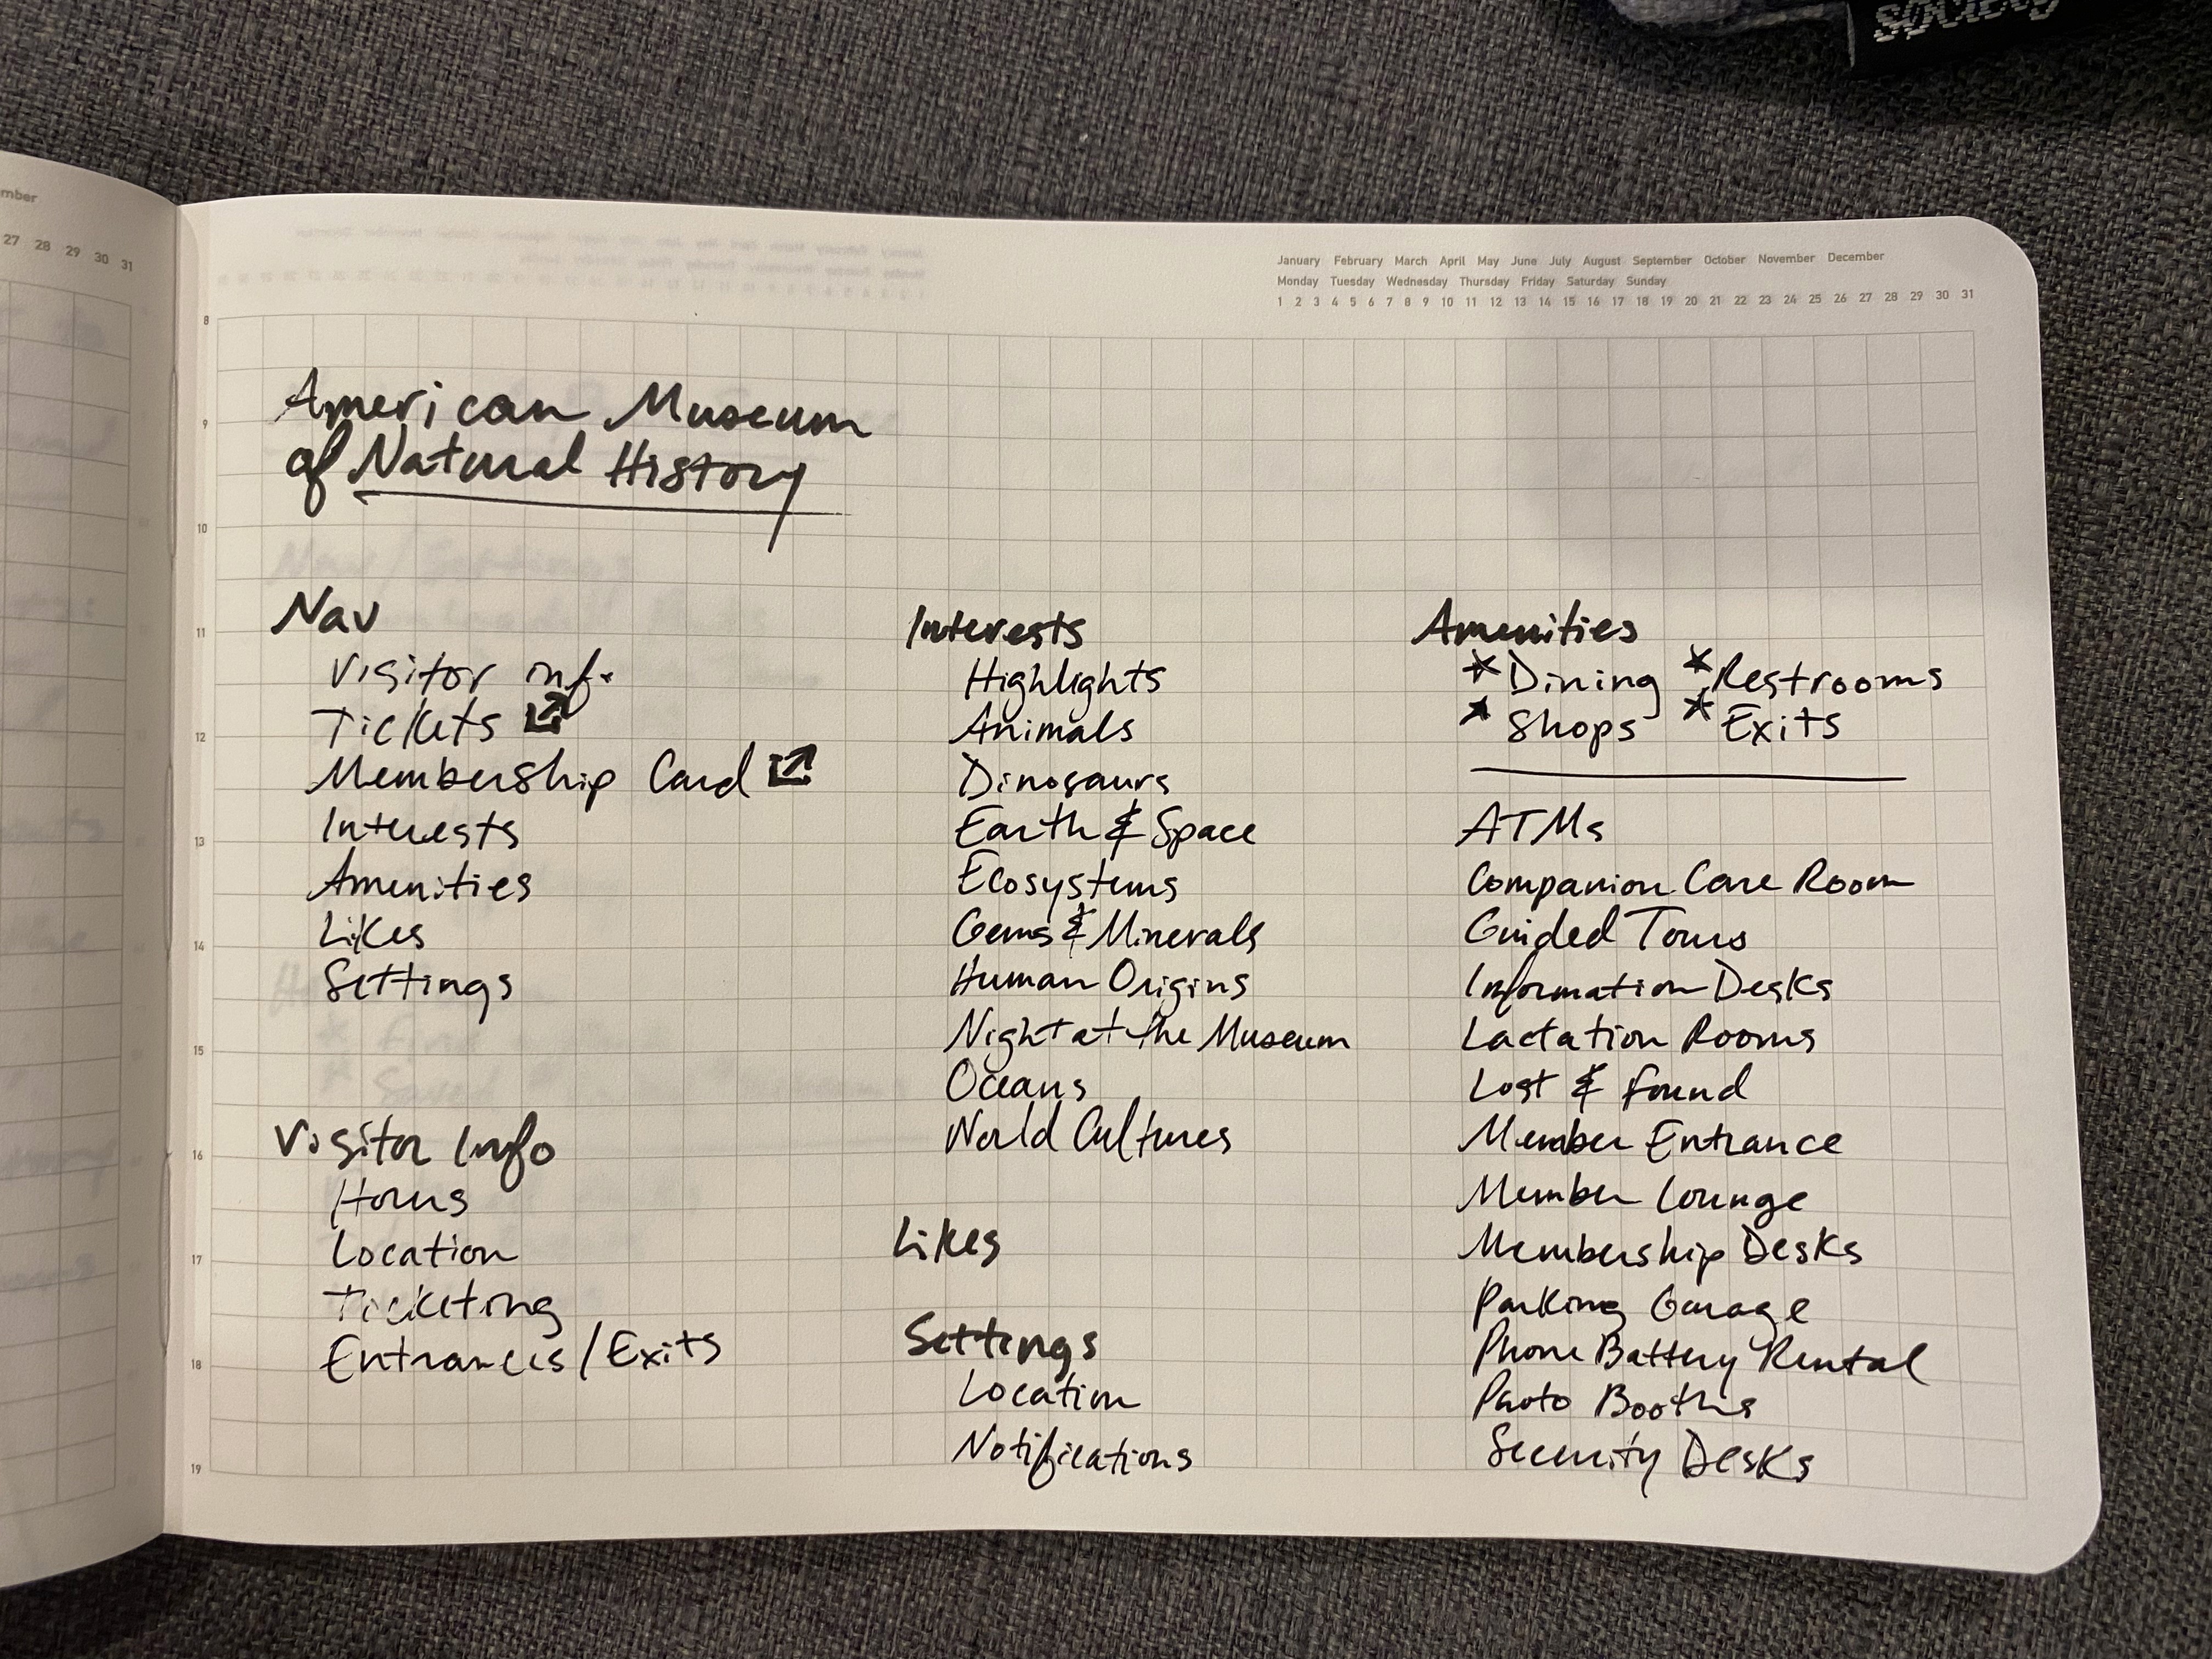 mber
27 28 29 30 31
January February March April May June July August September October November December
Monday Tuesday Wednesday Thursday Friday Saturday Sunday
1 2 3 4 5 6 7 8 9 10 11 12 13 14 15 16 17 18 19 20 21 22 23 24 25 26 27 28 29 30 31
8
9
10
11
12
13
14
15
16
17
18
19
American Museum
of Natural History
Nav
Visitor info
Tickets
Membership Card
Interests
Amenities
Likes
Settings
Visitor Info
Hours
Location
Ticketing
Entrances/Exits
Interests
Highlights
Animals
Dinosaurs
Earth & Space
Ecosystems
Gems & Minerals
Human Origins
Night at the Museum
Oceans
World Cultures
Likes
Settings
Location
Notifications
Amenities
* Dining * Restrooms
* Shops * Exits
ATMs
Companion Care Room
Guided Tours
Information Desks
Lactation Rooms
Lost & Found
Member Entrance
Member Lounge
Membership Desks
Parking Garage
Phone Battery Rental
Photo Booths
Security Desks